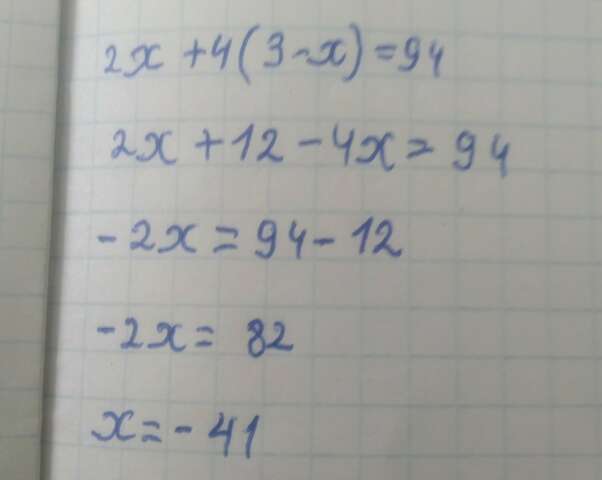 2x + 4(3-x) = 94
2x + 12 - 4x = 94
-2x = 94 - 12
-2x = 82
x = - 41